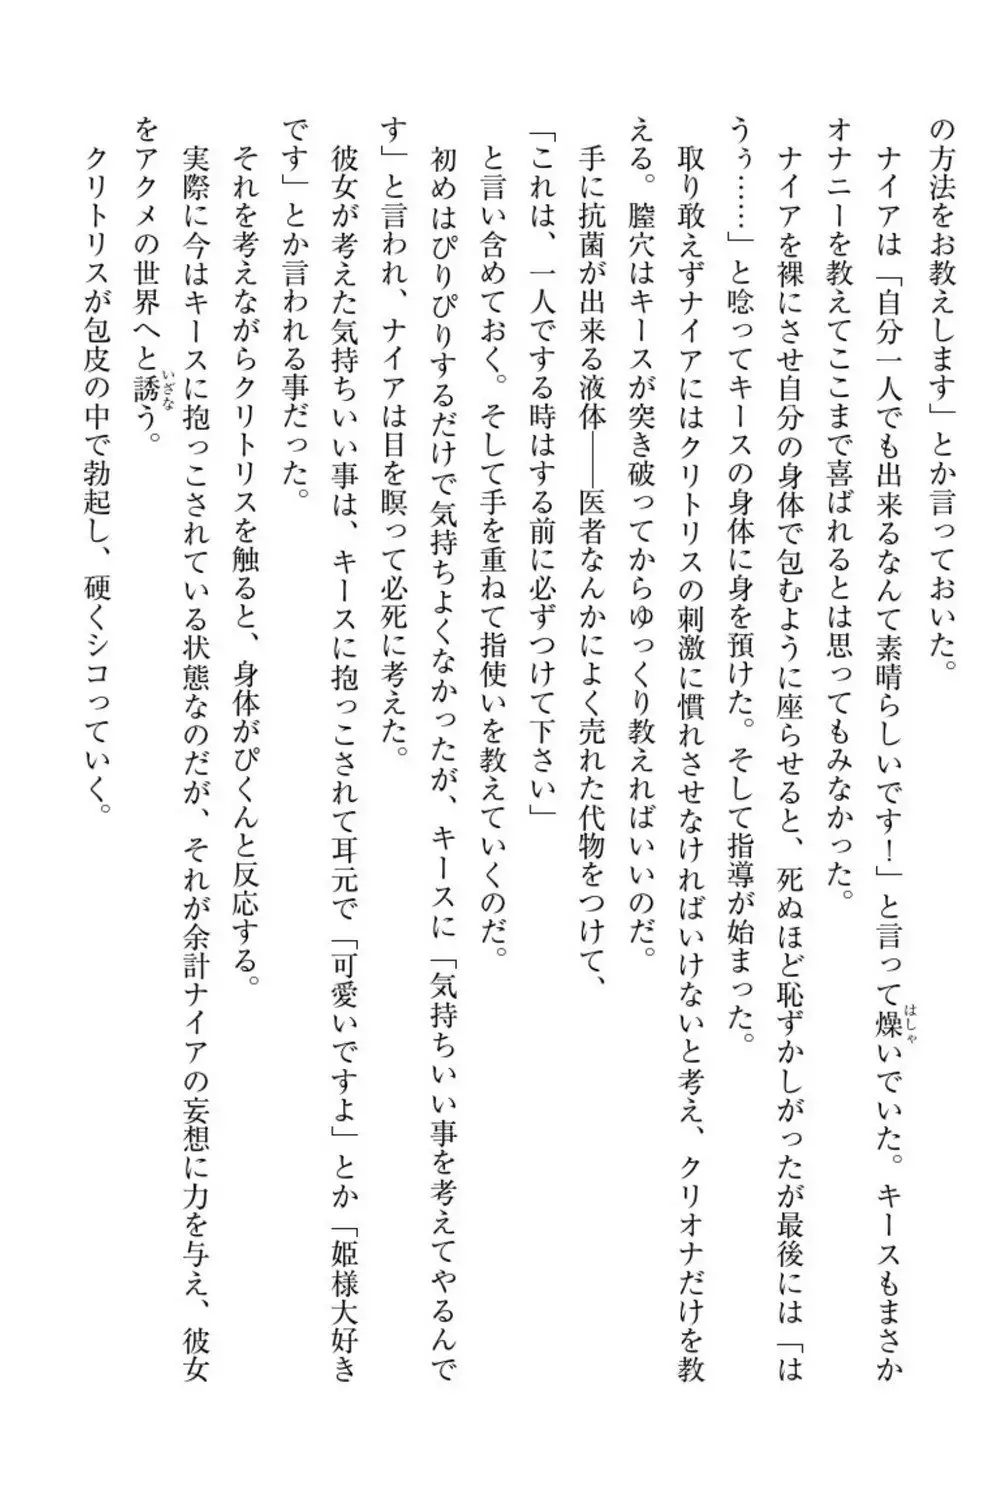 の方法をお教えします」とか言っておいた。
ナイアは「自分一人でも出来るなんて素晴らしいです！」と言って燥いでいた。キースもまさか
オナニーを教えてここまで喜ばれるとは思ってもみなかった。
ナイアを裸にさせ自分の身体で包むように座らせると、死ぬほど恥ずかしがったが最後には「は
うぅ……」と唸ってキースの身体に身を預けた。そして指導が始まった。
取り敢えずナイアにはクリトリスの刺激に慣れさせなければいけないと考え、クリオナだけを教
える。膣穴はキースが突き破ってからゆっくり教えればいいのだ。
手に抗菌が出来る液体――医者なんかによく売れた代物をつけて、
「これは、一人でする時はする前に必ずつけて下さい」
と言い含めておく。そして手を重ねて指使いを教えていくのだ。
初めはぴりぴりするだけで気持ちよくなかったが、キースに「気持ちいい事を考えてやるんで
す」と言われ、ナイアは目を瞑って必死に考えた。
彼女が考えた気持ちいい事は、キースに抱っこされて耳元で「可愛いですよ」とか「姫様大好き
です」とか言われる事だった。
それを考えながらクリトリスを触ると、身体がぴくんと反応する。
実際に今はキースに抱っこされている状態なのだが、それが余計ナイアの妄想に力を与え、彼女
をアクメの世界へと誘う。
クリトリスが包皮の中で勃起し、硬くシコっていく。